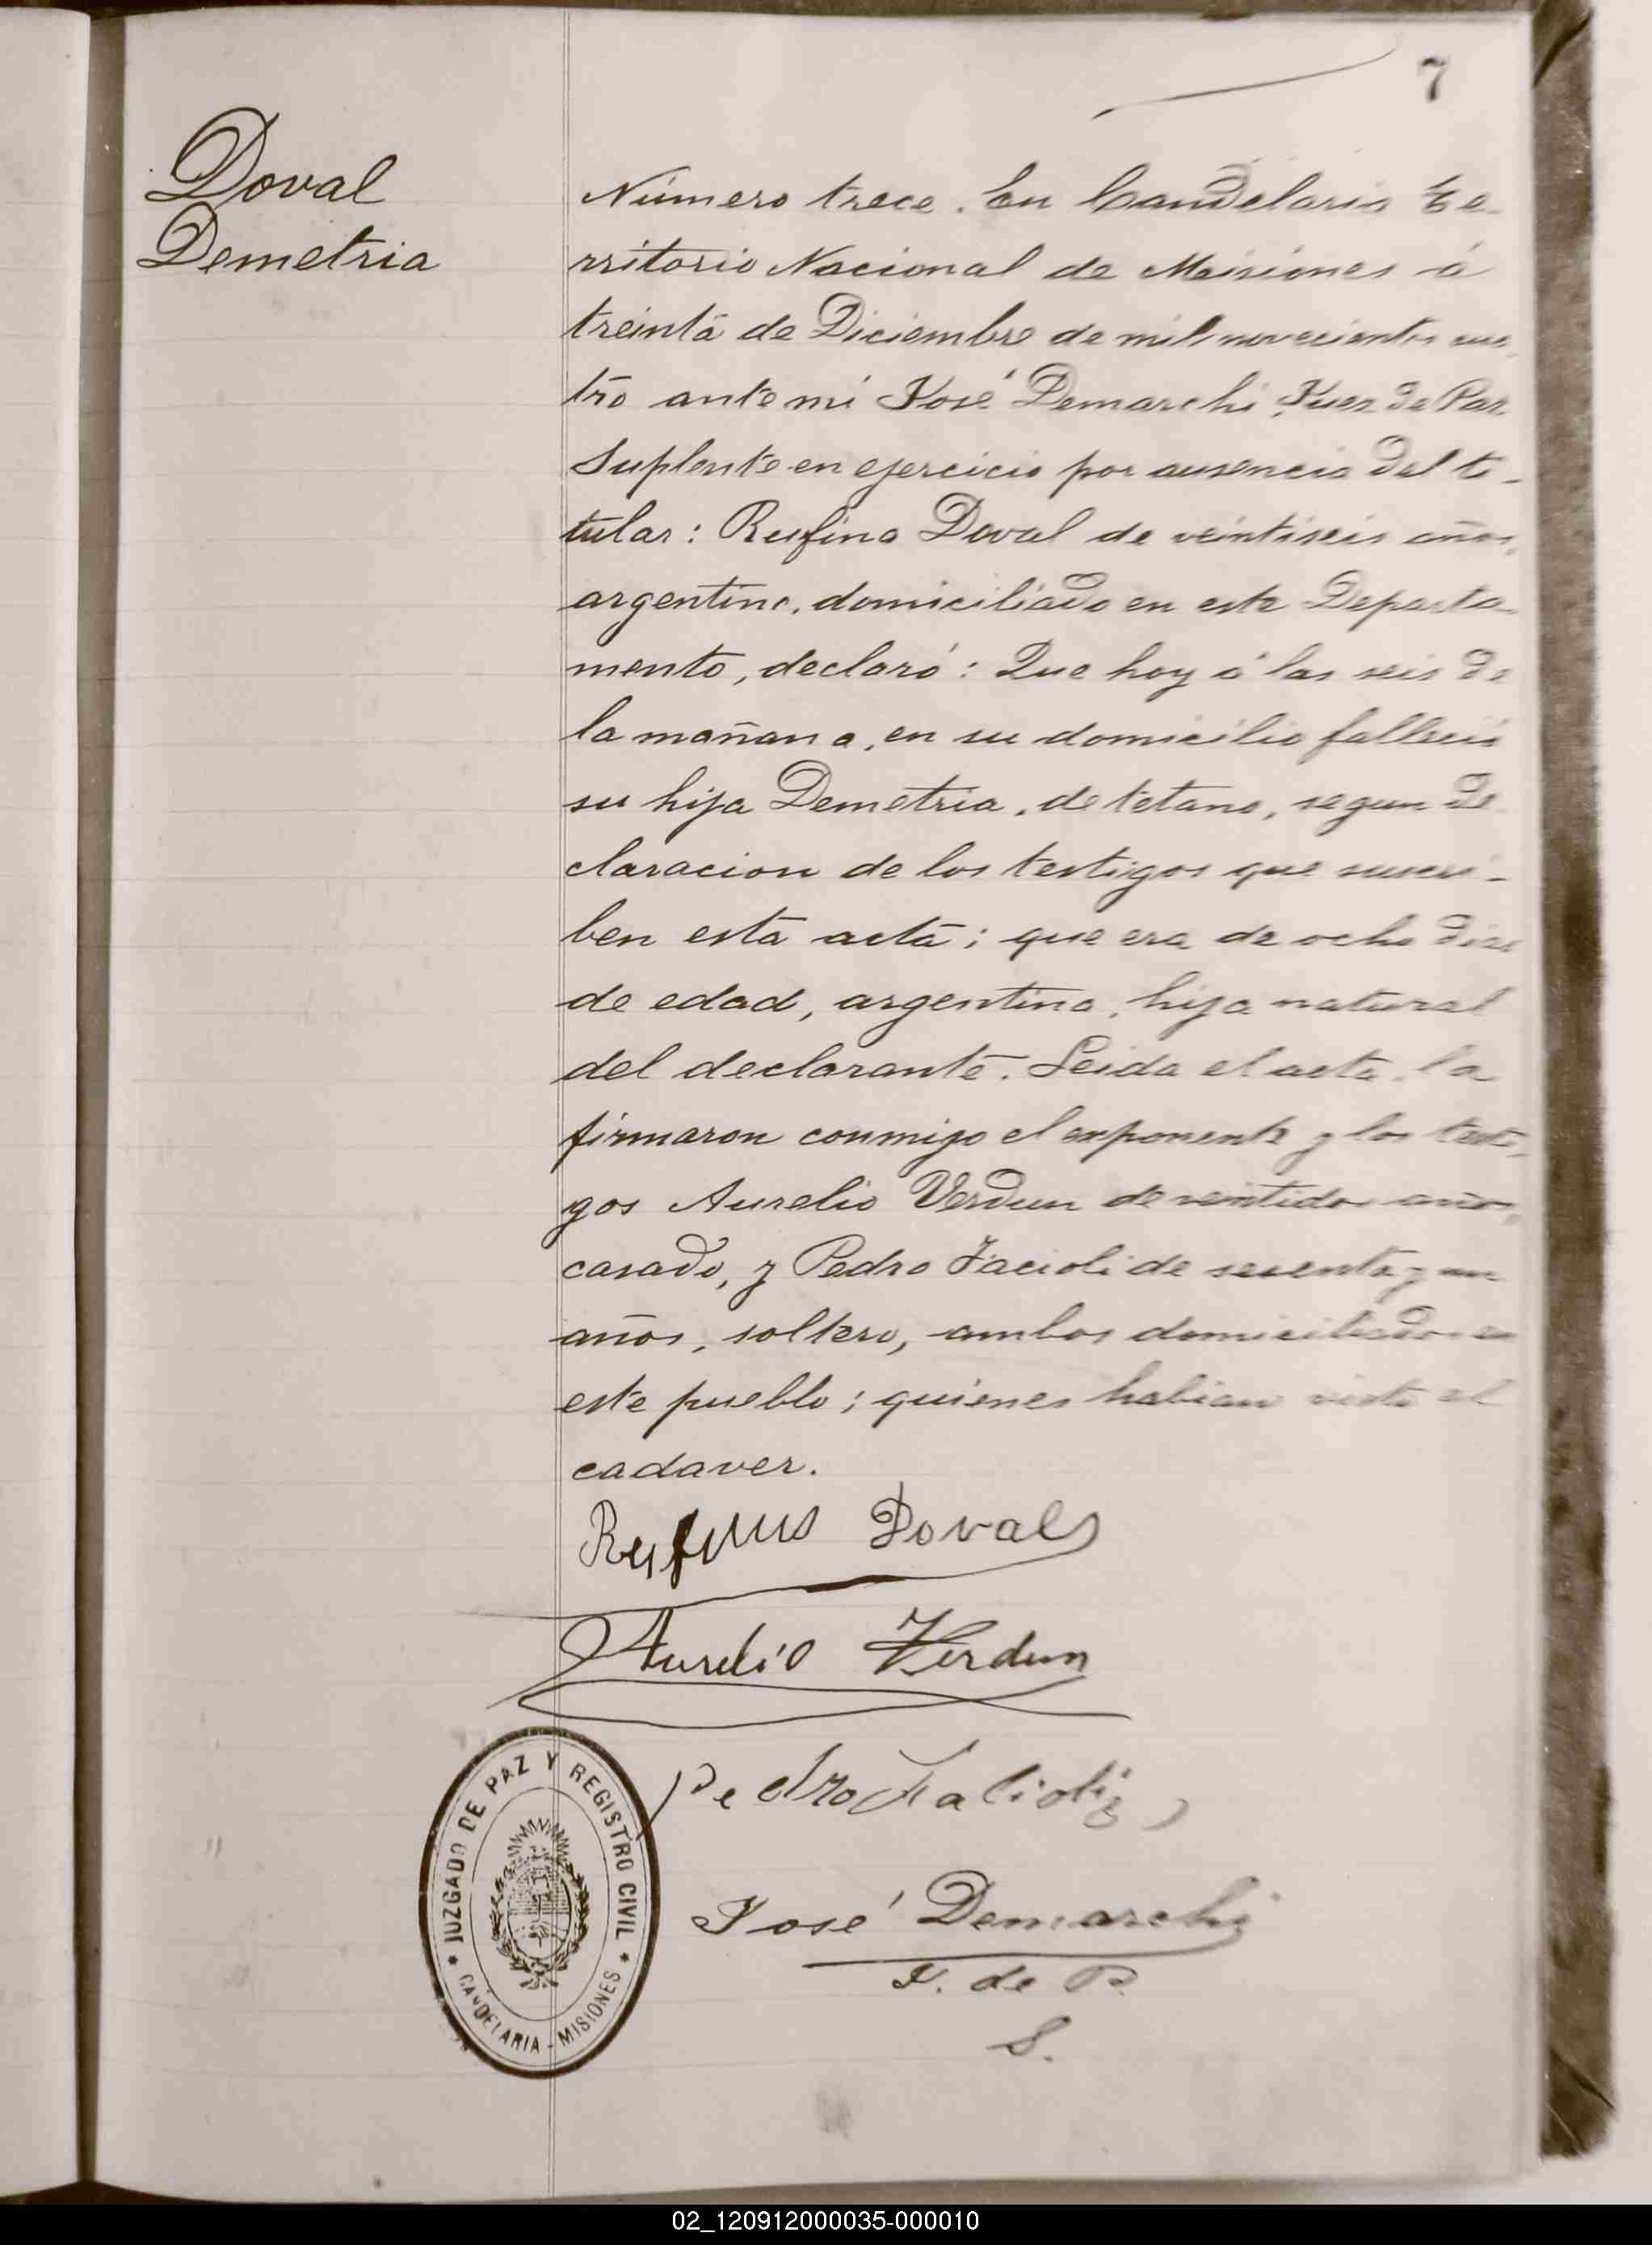 7
Doval
Demetria
Número trece. En Candelaria Te-
rritorio Nacional de Misiones á
treinta de Diciembre de mil novecientos cua-
tro ante mi José Demarchi, Juez de Paz
Suplente en ejercicio por ausencia del ti-
tular: Rufino Doval de veintiseis años,
argentino, domiciliado en este Departa-
mento, declaró: Que hoy á las seis de
la mañana, en su domicilio falleció
su hija Demetria, de tetano, segun de-
claracion de los testigos que suscri-
ben esta acta; que era de ocho dias
de edad, argentina, hija natural
del declarante. Leida el acta, la
firmaron conmigo el exponente y los testi-
gos Aurelio Verdun de veintidos años,
casado, y Pedro Facioli de sesenta y un
años, soltero, ambos domiciliados en
este pueblo; quienes habian visto el
cadaver.
Rufino Doval
Aurelio Verdun
Pedro Facioli
José Demarchi
J. de P.
S.
JUZGADO DE PAZ Y REGISTRO CIVIL
CANDELARIA - MISIONES
02_120912000035-000010